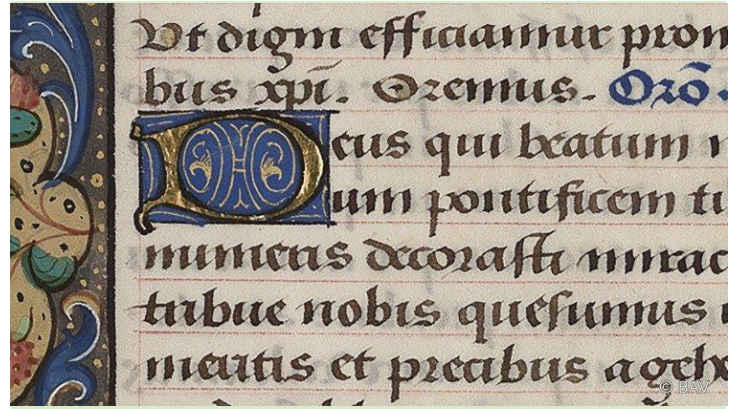 Vt digni efficiamur prom
bus xp̄i. Oremus. Orō.
Deus qui beatum n
um pontificem tu
numeris decorasti mirac
tribue nobis quesumus
meritis et precibus a gehe
© BAV